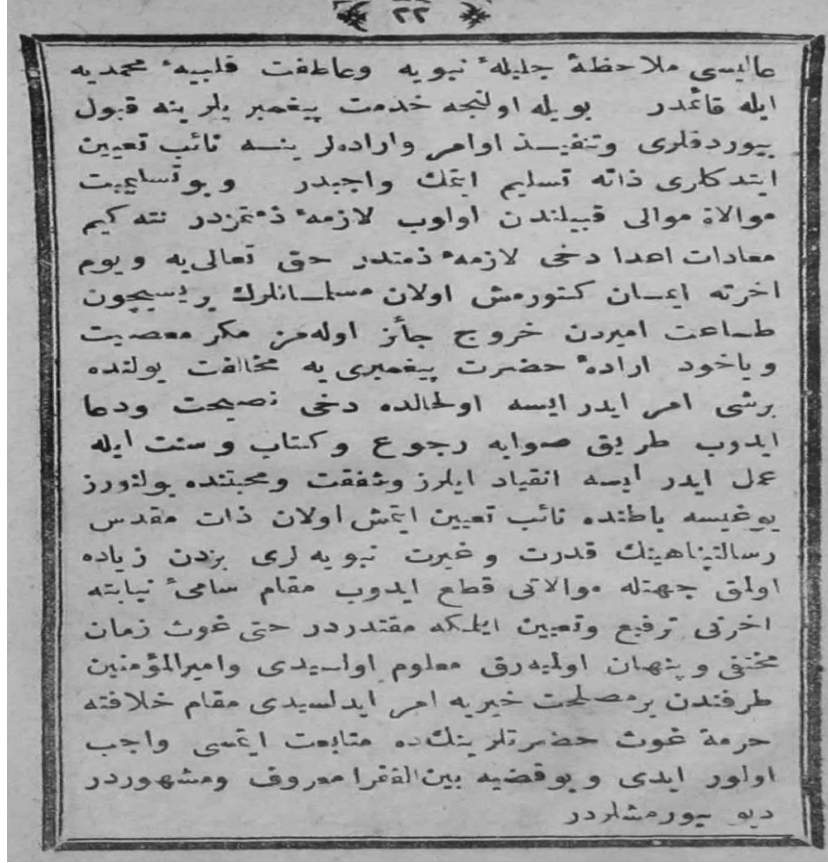 ﴿ ٢٢ ﴾
عاليسي ملاحظهٔ جليلهٔ نبويه وعاطفت قلبيهٔ محمديه
ايله قائمدر بويله اولنجه خدمت پيغمبريلرينه قبول
بيوردقلرى وتنفيذ اوامر وارادەلرينه نائب تعيين
ايتدكلرى ذاته تسليم ايتمك واجبدر وبو
موالاة موالى قبيلندن اولوب لازمهٔ ذمتمزدر نته كيم
معادات اعدا دخى لازمهٔ ذمتدر حق تعالى يه ويوم
اخرته ايمان كتورمش اولان مسلمانلرك بريسيچون
طاعت اميردن خروج جائز اوله مز مكر معصيت
وياخود ارادهٔ حضرت پيغمبرى يه مخالفت يولنده
برشى امر ايدر ايسه اولحالده دخى نصيحت ودعا
ايدوب طريق صوابه رجوع وكتاب وسنت ايله
عمل ايدر ايسه انقياد ايلرز وشفقت ومحبتنده بولنورز
يوغيسه باطنده نائب تعيين ايتمش اولان ذات مقدس
رسالتپناهينك قدرت وغيرت نبويه لرى بزدن زياده
اولمق جهتله موالاتى قطع ايدوب مقام سامئ نيابته
اخرتى ترفيع وتعيين ايلمكه مقتدردر حتى غوث زمان
مختفى وپنهان اوليه رق معلوم اولسيدى واميرالمؤمنين
طرفندن بر مصلحت خيريه امر ايدلسيدى مقام خلافته
حرمة غوث حضرتلرينك ده متابعت ايتمسى واجب
اولور ايدى وبو قضيه بين الفقرا معروف ومشهوردر
ديو بيورمشلردر